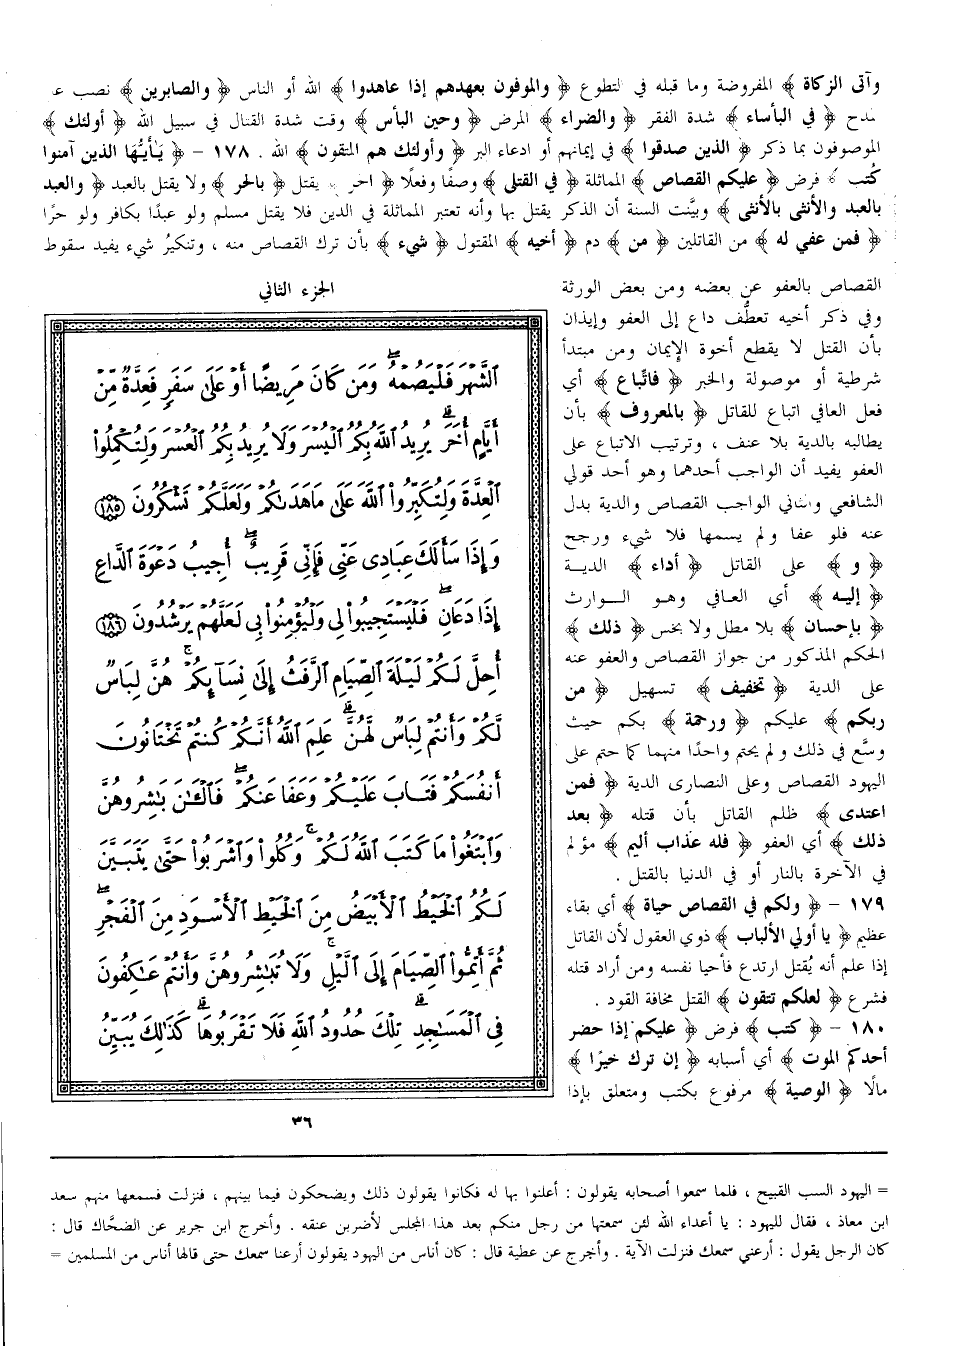 وآتى الزكاة ﴾ المفروضة وما قبله في التطوع ﴿ والموفون بعهدهم إذا عاهدوا ﴾ الله أو الناس ﴿ والصابرين ﴾ نصب
﴿ في البأساء ﴾ شدة الفقر ﴿ والضراء ﴾ المرض ﴿ وحين البأس ﴾ وقت شدة القتال في سبيل الله ﴿ أولئك ﴾
الموصوفون بما ذكر ﴿ الذين صدقوا ﴾ في إيمانهم أو ادعاء البر ﴿ وأولئك هم المتقون ﴾ الله . ١٧٨ - ﴿ يأيُّها الذين آمنوا
كُتب ﴾ فرض ﴿ عليكم القصاص ﴾ المماثلة ﴿ في القتلى ﴾ وصفًا وفعلًا ﴿ يقتل ﴿ بالحر ﴾ ولا يقتل بالعبد ﴿ والعبد
بالعبد والأنثى بالأنثى ﴾ وبيَّنت السنة أن الذكر يقتل بها وأنه تعتبر المماثلة في الدين فلا يقتل مسلم ولو عبدًا بكافر ولو حرًا
﴿ فمن عفي له ﴾ من القاتلين ﴿ من ﴾ دم ﴿ أخيه ﴾ المقتول ﴿ شيء ﴾ بأن ترك القصاص منه ، وتنكيرُ شيء يفيد سقوط
القصاص بالعفو عن بعضه ومن بعض الورثة
وفي ذكر أخيه تعطُّف داع إلى العفو وإيذان
بأن القتل لا يقطع أخوة الإيمان ومن مبتدأ
شرطية أو موصولة والخبر ﴿ فاتباع ﴾ أي
فعل العافي اتباع للقاتل ﴿ بالمعروف ﴾ بأن
يطالبه بالدية بلا عنف ، وترتيب الاتباع على
العفو يفيد أن الواجب أحدهما وهو أحد قولي
الشافعي والثاني الواجب القصاص والدية بدل
عنه فلو عفا ولم يسمها فلا شيء ورجح
﴿ و ﴾ على القاتل ﴿ أداء ﴾ الدية
﴿ إليه ﴾ أي العافي وهو الوارث
﴿ بإحسان ﴾ بلا مطل ولا بخس ﴿ ذلك ﴾
الحكم المذكور من جواز القصاص والعفو عنه
على الدية ﴿ تخفيف ﴾ تسهيل ﴿ من
ربكم ﴾ عليكم ﴿ ورحمة ﴾ بكم حيث
وسَّع في ذلك ولم يحتم واحدًا منهما كما حتم على
اليهود القصاص وعلى النصارى الدية ﴿ فمن
اعتدى ﴾ ظلم القاتل بأن قتله ﴿ بعد
ذلك ﴾ أي العفو ﴿ فله عذاب أليم ﴾ مؤلم
في الآخرة بالنار أو في الدنيا بالقتل .
١٧٩ - ﴿ ولكم في القصاص حياة ﴾ أي بقاء
عظيم ﴿ يا أولي الألباب ﴾ ذوي العقول لأن القاتل
إذا علم أنه يُقتل ارتدع فأحيا نفسه ومن أراد قتله
فشرع ﴿ لعلكم تتقون ﴾ القتل مخافة القود .
١٨٠ - ﴿ كتب ﴾ فرض ﴿ عليكم إذا حضر
أحدكم الموت ﴾ أي أسبابه ﴿ إن ترك خيرًا ﴾
مالًا ﴿ الوصية ﴾ مرفوع بكتب ومتعلق بإذا
الجزء الثاني
ٱلشَّهْرَ فَلْيَصُمْهُ ۖ وَمَن كَانَ مَرِيضًا أَوْ عَلَىٰ سَفَرٍ فَعِدَّةٌ مِّنْ
أَيَّامٍ أُخَرَ ۗ يُرِيدُ ٱللَّهُ بِكُمُ ٱلْيُسْرَ وَلَا يُرِيدُ بِكُمُ ٱلْعُسْرَ وَلِتُكْمِلُوا۟
ٱلْعِدَّةَ وَلِتُكَبِّرُوا۟ ٱللَّهَ عَلَىٰ مَا هَدَىٰكُمْ وَلَعَلَّكُمْ تَشْكُرُونَ ١٨٥
وَإِذَا سَأَلَكَ عِبَادِى عَنِّى فَإِنِّى قَرِيبٌ ۖ أُجِيبُ دَعْوَةَ ٱلدَّاعِ
إِذَا دَعَانِ ۖ فَلْيَسْتَجِيبُوا۟ لِى وَلْيُؤْمِنُوا۟ بِى لَعَلَّهُمْ يَرْشُدُونَ ١٨٦
أُحِلَّ لَكُمْ لَيْلَةَ ٱلصِّيَامِ ٱلرَّفَثُ إِلَىٰ نِسَآئِكُمْ ۚ هُنَّ لِبَاسٌ
لَّكُمْ وَأَنتُمْ لِبَاسٌ لَّهُنَّ ۗ عَلِمَ ٱللَّهُ أَنَّكُمْ كُنتُمْ تَخْتَانُونَ
أَنفُسَكُمْ فَتَابَ عَلَيْكُمْ وَعَفَا عَنكُمْ ۖ فَٱلْـَٰٔنَ بَٰشِرُوهُنَّ
وَٱبْتَغُوا۟ مَا كَتَبَ ٱللَّهُ لَكُمْ ۚ وَكُلُوا۟ وَٱشْرَبُوا۟ حَتَّىٰ يَتَبَيَّنَ
لَكُمُ ٱلْخَيْطُ ٱلْأَبْيَضُ مِنَ ٱلْخَيْطِ ٱلْأَسْوَدِ مِنَ ٱلْفَجْرِ ۖ
ثُمَّ أَتِمُّوا۟ ٱلصِّيَامَ إِلَى ٱلَّيْلِ ۚ وَلَا تُبَٰشِرُوهُنَّ وَأَنتُمْ عَٰكِفُونَ
فِى ٱلْمَسَٰجِدِ ۗ تِلْكَ حُدُودُ ٱللَّهِ فَلَا تَقْرَبُوهَا ۗ كَذَٰلِكَ يُبَيِّنُ
٣٦
= اليهود السب القبيح ، فلما سمعوا أصحابه يقولون : أعلنوا بها له فكانوا يقولون ذلك ويضحكون فيما بينهم ، فنزلت فسمعها منهم سعد
ابن معاذ ، فقال لليهود : يا أعداء الله لئن سمعتها من رجل منكم بعد هذا المجلس لأضربن عنقه . وأخرج ابن جرير عن الضحَّاك قال :
كان الرجل يقول : أرعني سمعك فنزلت الآية . وأخرج عن عطية قال : كان أناس من اليهود يقولون أرعنا سمعك حتى قالها أناس من المسلمين =